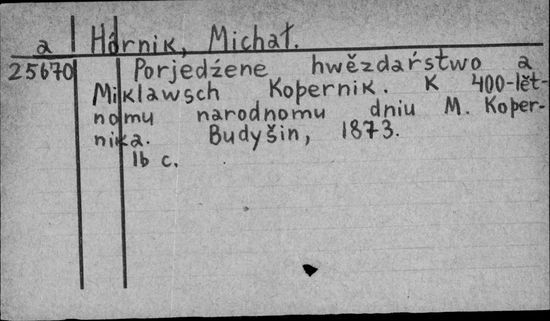 a Hórnik, Michał.
25670 Porjedźene hwězdaŕstwo a
Miklawsch Kopernik. K 400-lět-
nomu narodnomu dniu M. Koper-
nika. Budyšin, 1873.
16 c.